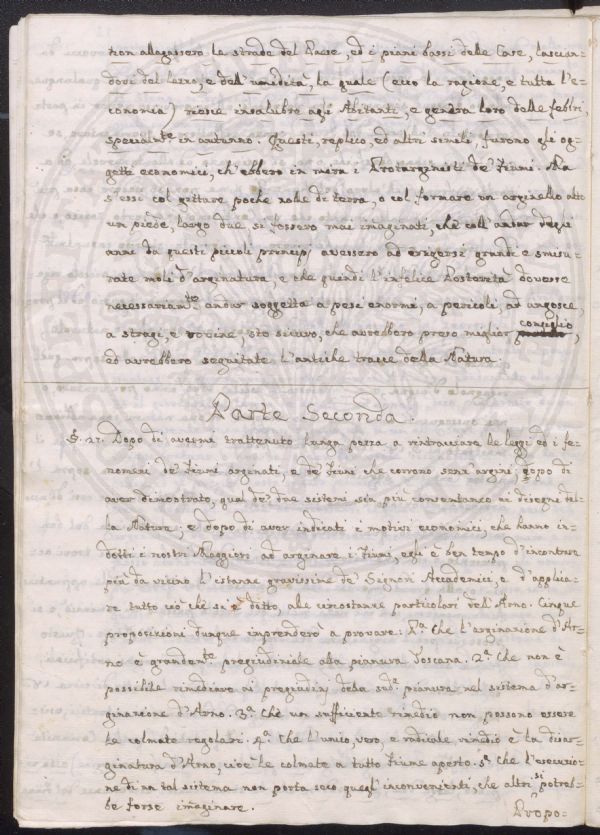 non allagassero le strade del Paese, ed i piani bassi delle Case, lascian-
dosi del lezzo, e dell'umidità, la quale (ecco la ragione, e tutta l'e-
conomia) riesce insalubre agli Abitanti, e genera loro delle febbri,
specialmte in autunno. Questi, replico, ed altri simili, furono gli og-
getti economici, ch'ebbero in mira i Protarginisti de' Fiumi. Ma
s'essi col gittare poche zolle di terra, o col formare un arginello alto
un piede, largo due si fossero mai imaginati, che coll'andar degli
anni da questi piccoli principj avessero ad erigersi grandi e smisu-
rate moli d'arginatura, e che quindi l'infelice Posterità dovesse
necessariamte andar soggetta a pesi enormi, a pericoli, ad angosce,
a stragi, e rovine, sto sicuro, che avrebbero preso miglior consiglio,
ed avrebbero seguitate l'antiche tracce della Natura.
Parte Seconda.
§. 27. Dopo di avermi trattenuto lunga pezza a rintracciare le leggi ed i fe-
nomeni de' Fiumi arginati, e de' Fiumi che corrono senz'argini; dopo di
aver dimostrato, qual de' due sistemi sia più consentaneo ai disegni del-
la Natura; e dopo di aver indicati i motivi economici, che hanno in-
dotti i nostri Maggiori ad arginare i Fiumi, egli è ben tempo d'incontrare
più da vicino l'istanze gravissime de' Signori Accademici, e d'applica-
re tutto ciò che si è detto, alle circostanze particolari dell'Arno. Cinque
proposizioni dunque imprenderò a provare: Pa. Che l'arginazione d'Ar-
no è grandemte pregiudiciale alla pianura Toscana. 2a. Che non è
possibile rimediare ai pregiudizj della suda pianura nel sistema d'ar-
ginazione d'Arno. 3a. Che un sufficiente rimedio non possono essere
le colmate regolari. 4a. Che l'unico, vero, e radicale rimedio è la disar-
ginatura d'Arno, cioè le colmate a tutto Fiume aperto. 5a. Che l'esecuzio-
ne di un tal sistema non porta seco quegl'inconvenienti, che altri si potreb-
be forse imaginare.
Propo-